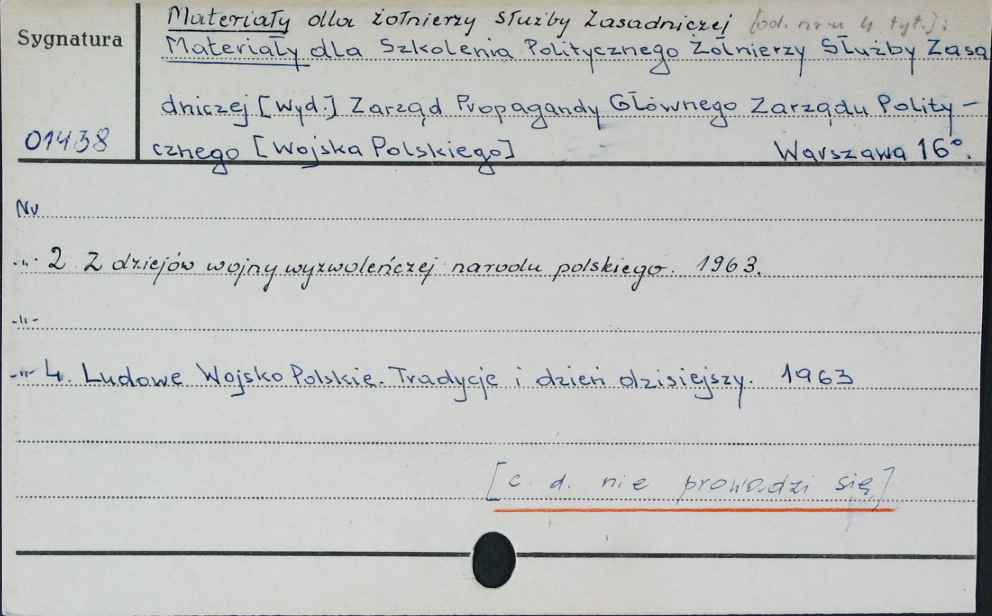 Materiały dla żołnierzy służby zasadniczej [od. nru 4 tyt.]:
Sygnatura
Materiały dla Szkolenia Politycznego Żołnierzy Służby Zasa
dniczej [Wyd.] Zarząd Propagandy Głównego Zarządu Polity-
01438
cznego [Wojska Polskiego] Warszawa 16°.
Nr
-"- 2 Z dziejów wojny wyzwoleńczej narodu polskiego. 1963.
-"-
-"- 4. Ludowe Wojsko Polskie. Tradycje i dzień dzisiejszy. 1963
[c. d. nie prowadzi się]